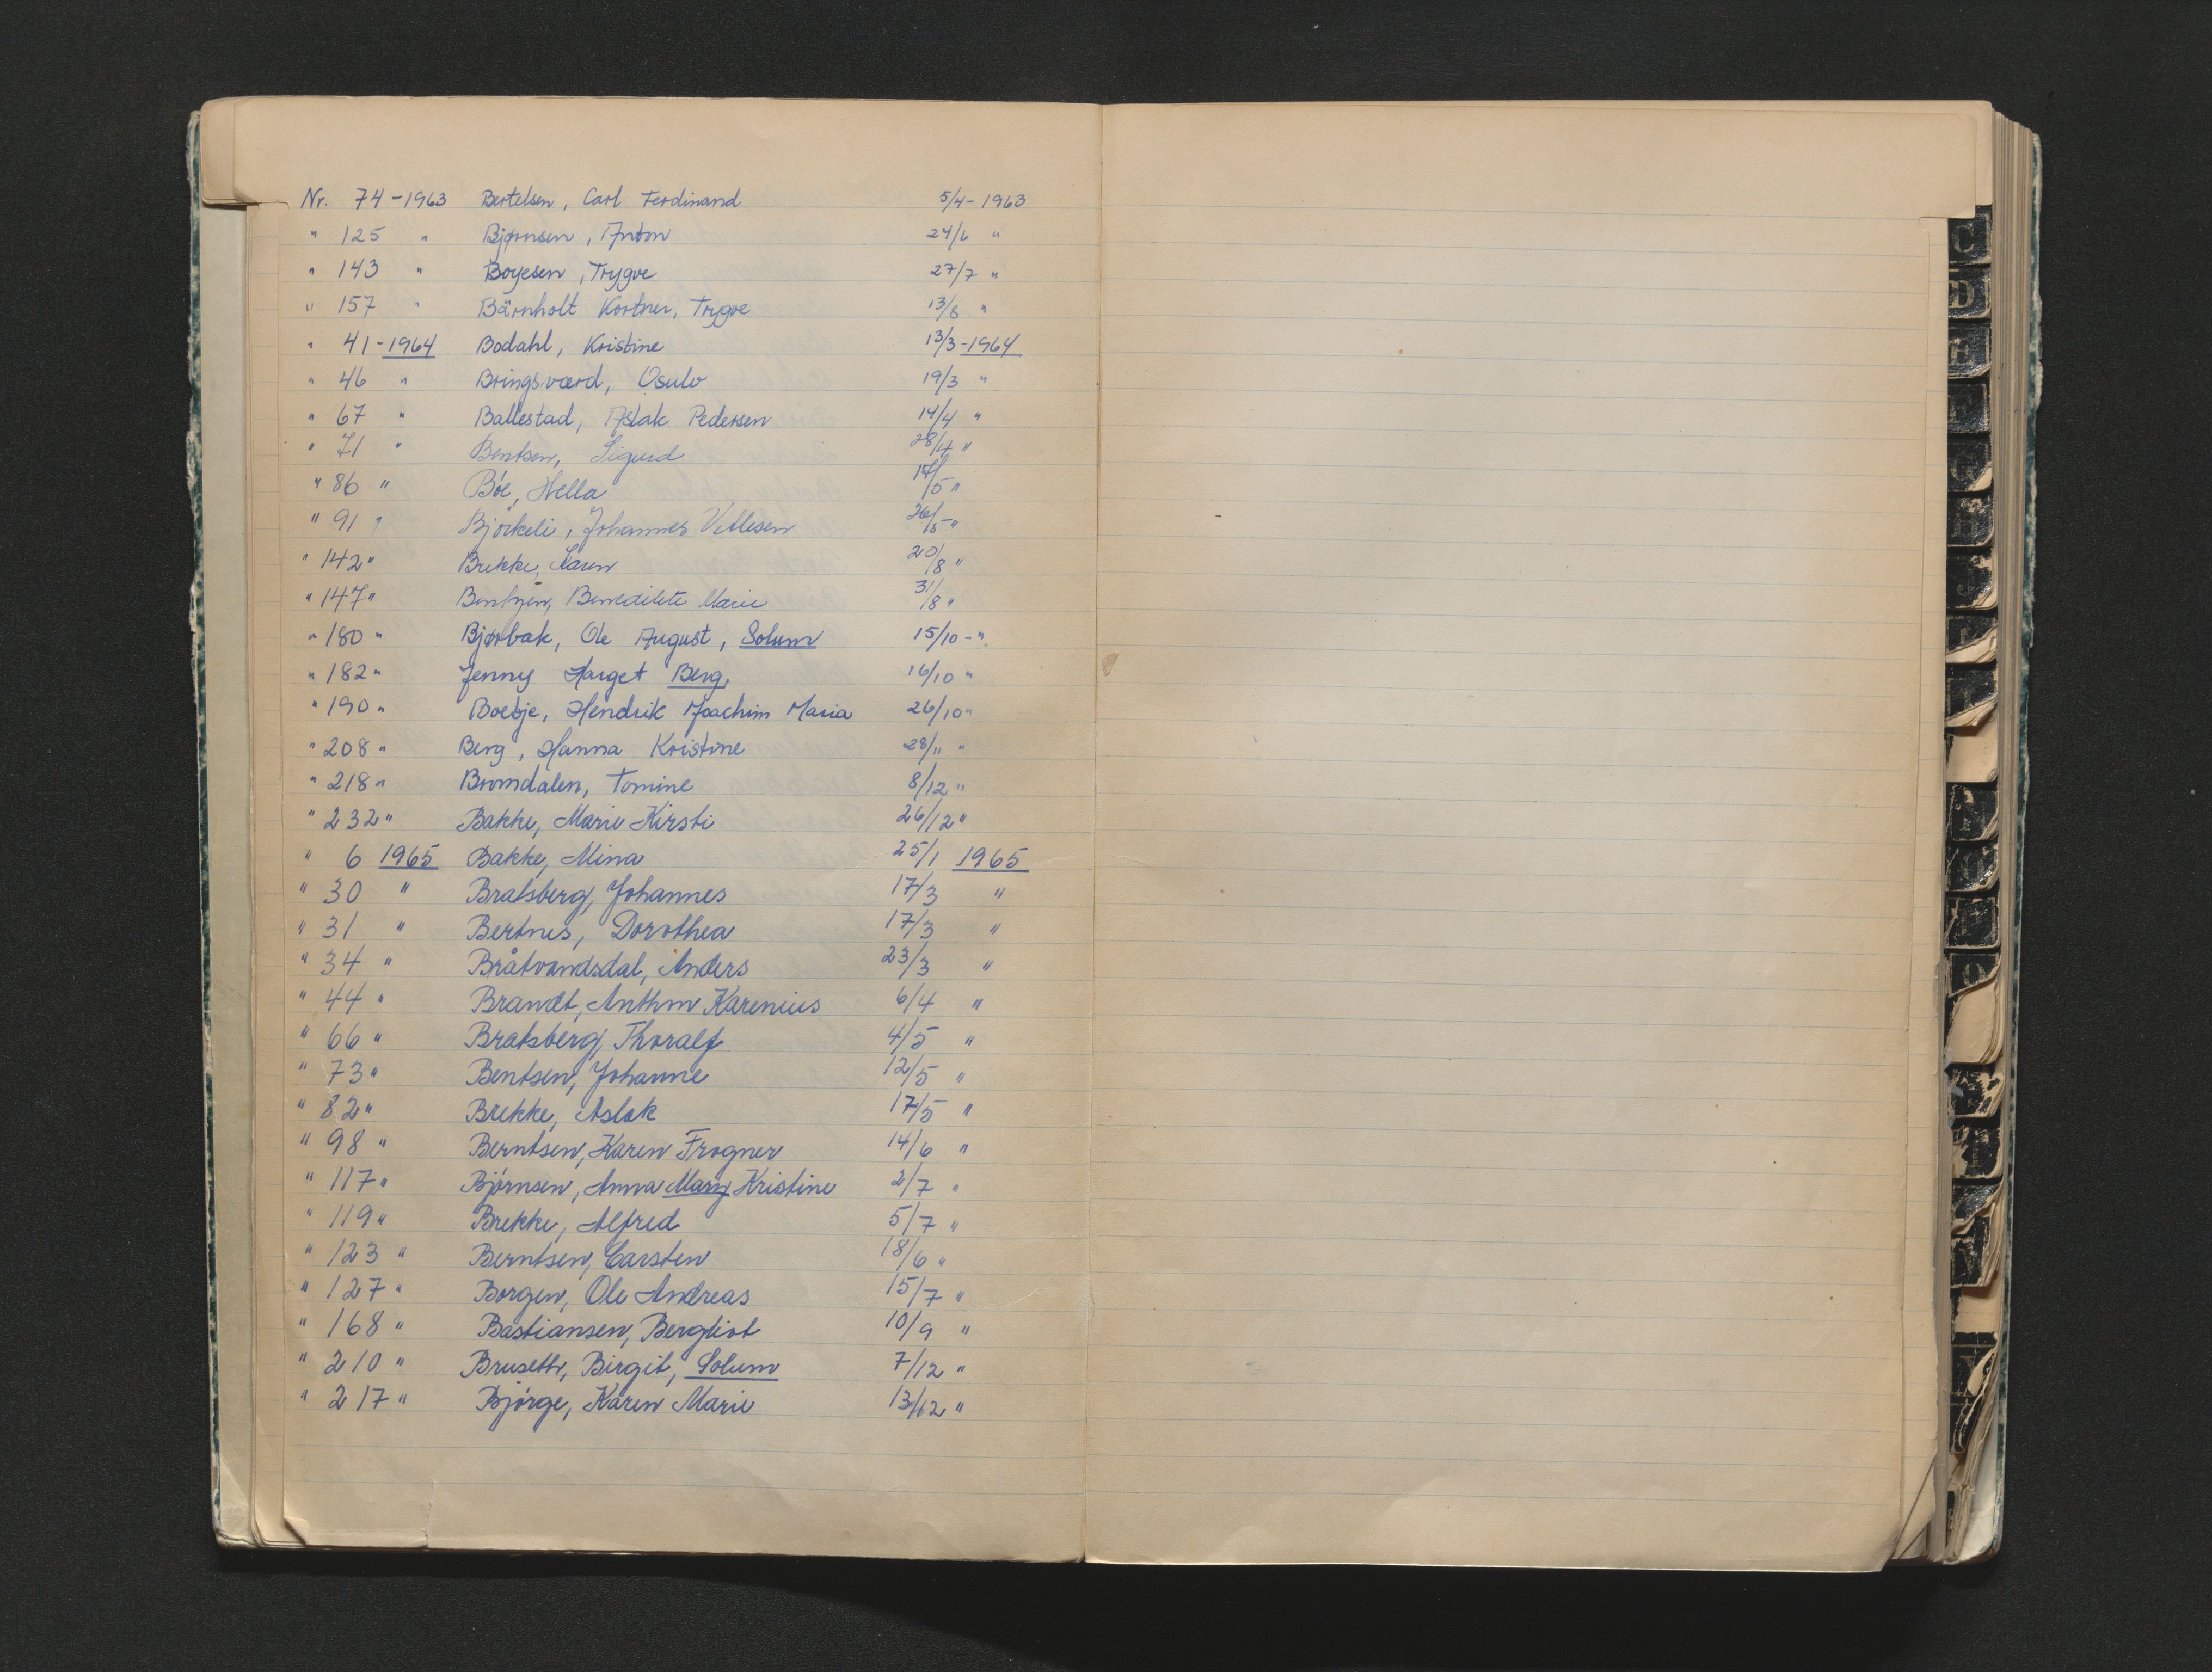 Nr. 74-1963 Bertelsen, Carl Ferdinand 5/4-1963
" 125 " Bjørnsen, Anton 24/6 "
" 143 " Boyesen, Trygve 27/7 "
" 157 " Bärnholt Kortner, Trygve 13/8 "
" 41-1964 Bodahl, Kristine 13/3-1964
" 46 " Bringsværd, Osulv 19/3 "
" 67 " Ballestad, Aslak Pedersen 14/4 "
" 71 " Bentsen, Sigurd 28/4 "
" 86 " Bøe, Hella 14/5 "
" 91 " Bjørkeli, Johannes Vetlesen 26/5 "
" 142 " Brekke, Karen 20/8 "
" 147 " Bentzen, Benedikte Marie 31/8 "
" 180 " Bjørbak, Ole August, Solum 15/10-"
" 182 " Jenny Harget Berg, 16/10 "
" 190 " Boetje, Hendrik Joachim Maria 26/10 "
" 208 " Berg, Hanna Kristine 28/11 "
" 218 " Bromdalen, Tomine 8/12 "
" 232 " Bakke, Marie Kirsti 26/12 "
" 6 1965 Bakke, Mina 25/1 1965
" 30 " Bratsberg, Johannes 17/3 "
" 31 " Bertnes, Dorothea 17/3 "
" 34 " Bråtvandsdal, Anders 23/3 "
" 44 " Brandt, Anthon Karenius 6/4 "
" 66 " Bratsberg, Thoralf 4/5 "
" 73 " Bentsen, Johanne 12/5 "
" 82 " Brekke, Aslak 17/5 "
" 98 " Berntsen, Karen Frogner 14/6 "
" 117 " Bjørnsen, Anna Mary Kristine 2/7 "
" 119 " Brekke, Alfred 5/7 "
" 123 " Berntsen, Carsten 18/6 "
" 127 " Borgen, Ole Andreas 15/7 "
" 168 " Bastiansen, Bergliot 10/9 "
" 210 " Bruseth, Birgit, Solum 7/12 "
" 217 " Bjørge, Karen Marie 13/12 "
C
D